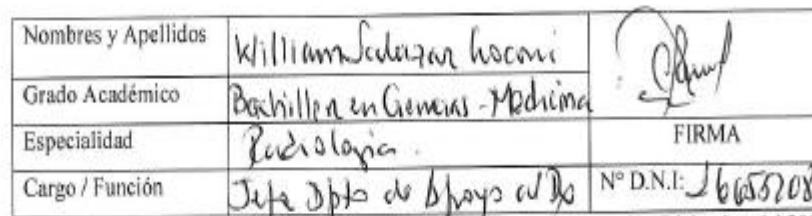 Nombres y Apellidos William Salazar
Grado Académico Bachiller en Ciencias - Medicina
Especialidad Radiología. FIRMA
Cargo / Función Jefe Dpto de Apoyo al Dx N° D.N.I: